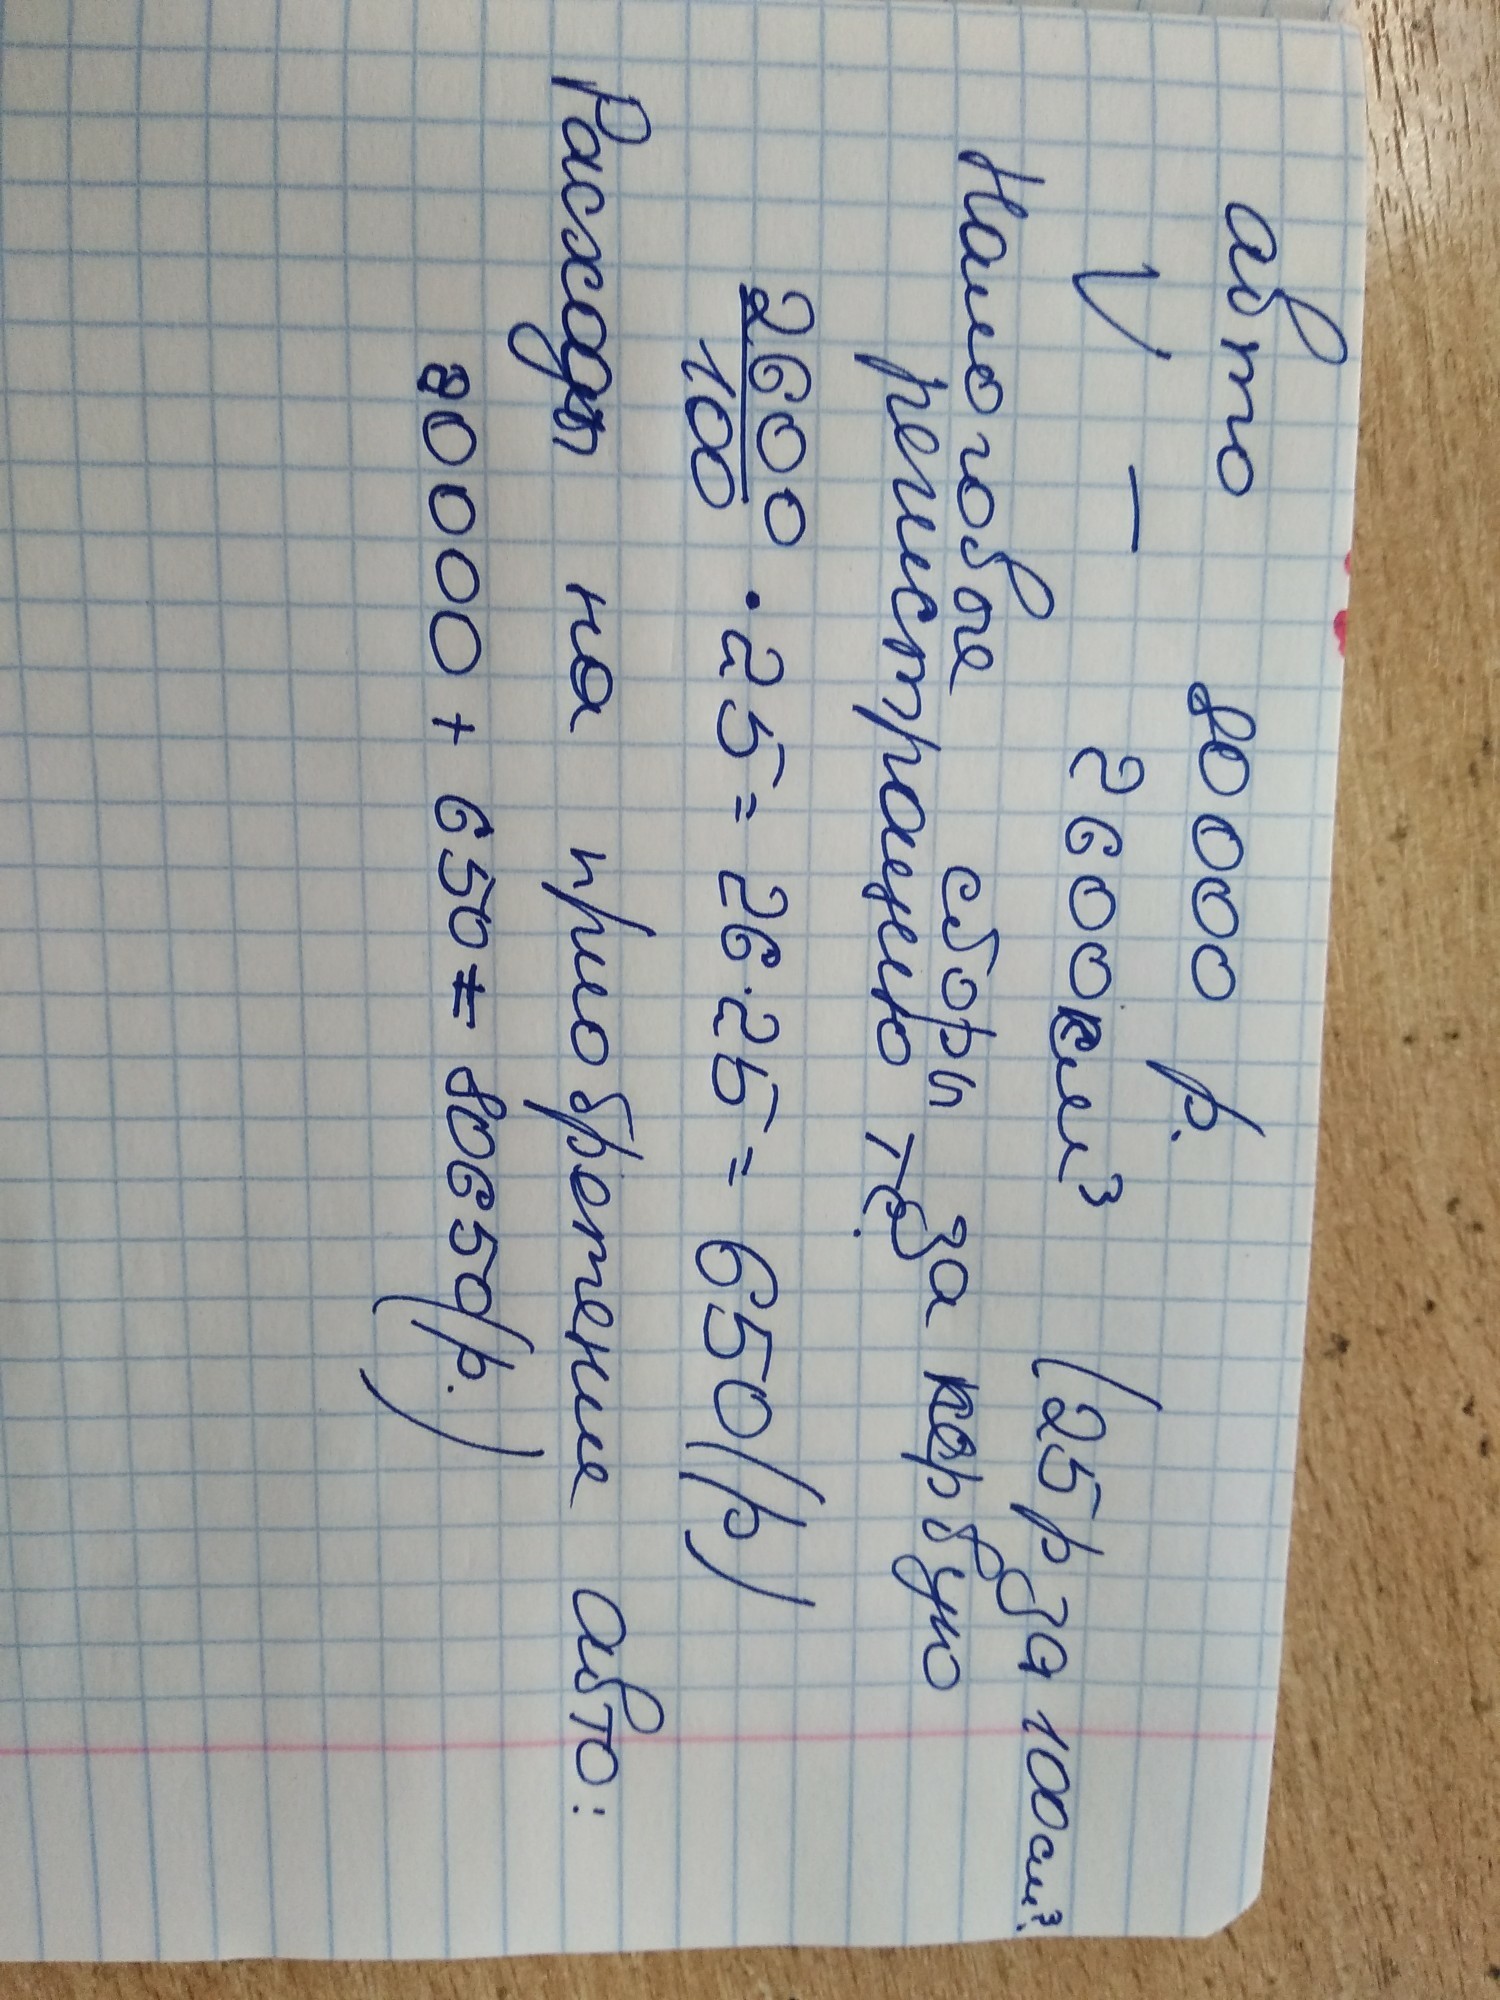 авто 80000 р.
V — 2600см³ (25р за 100см³.
Налоговые сборы за первую
регистрацию т.
2600/100 · 25 = 26·25 = 650(р)
Расходы на приобретение авто:
80000 + 650 = 80650(р.)